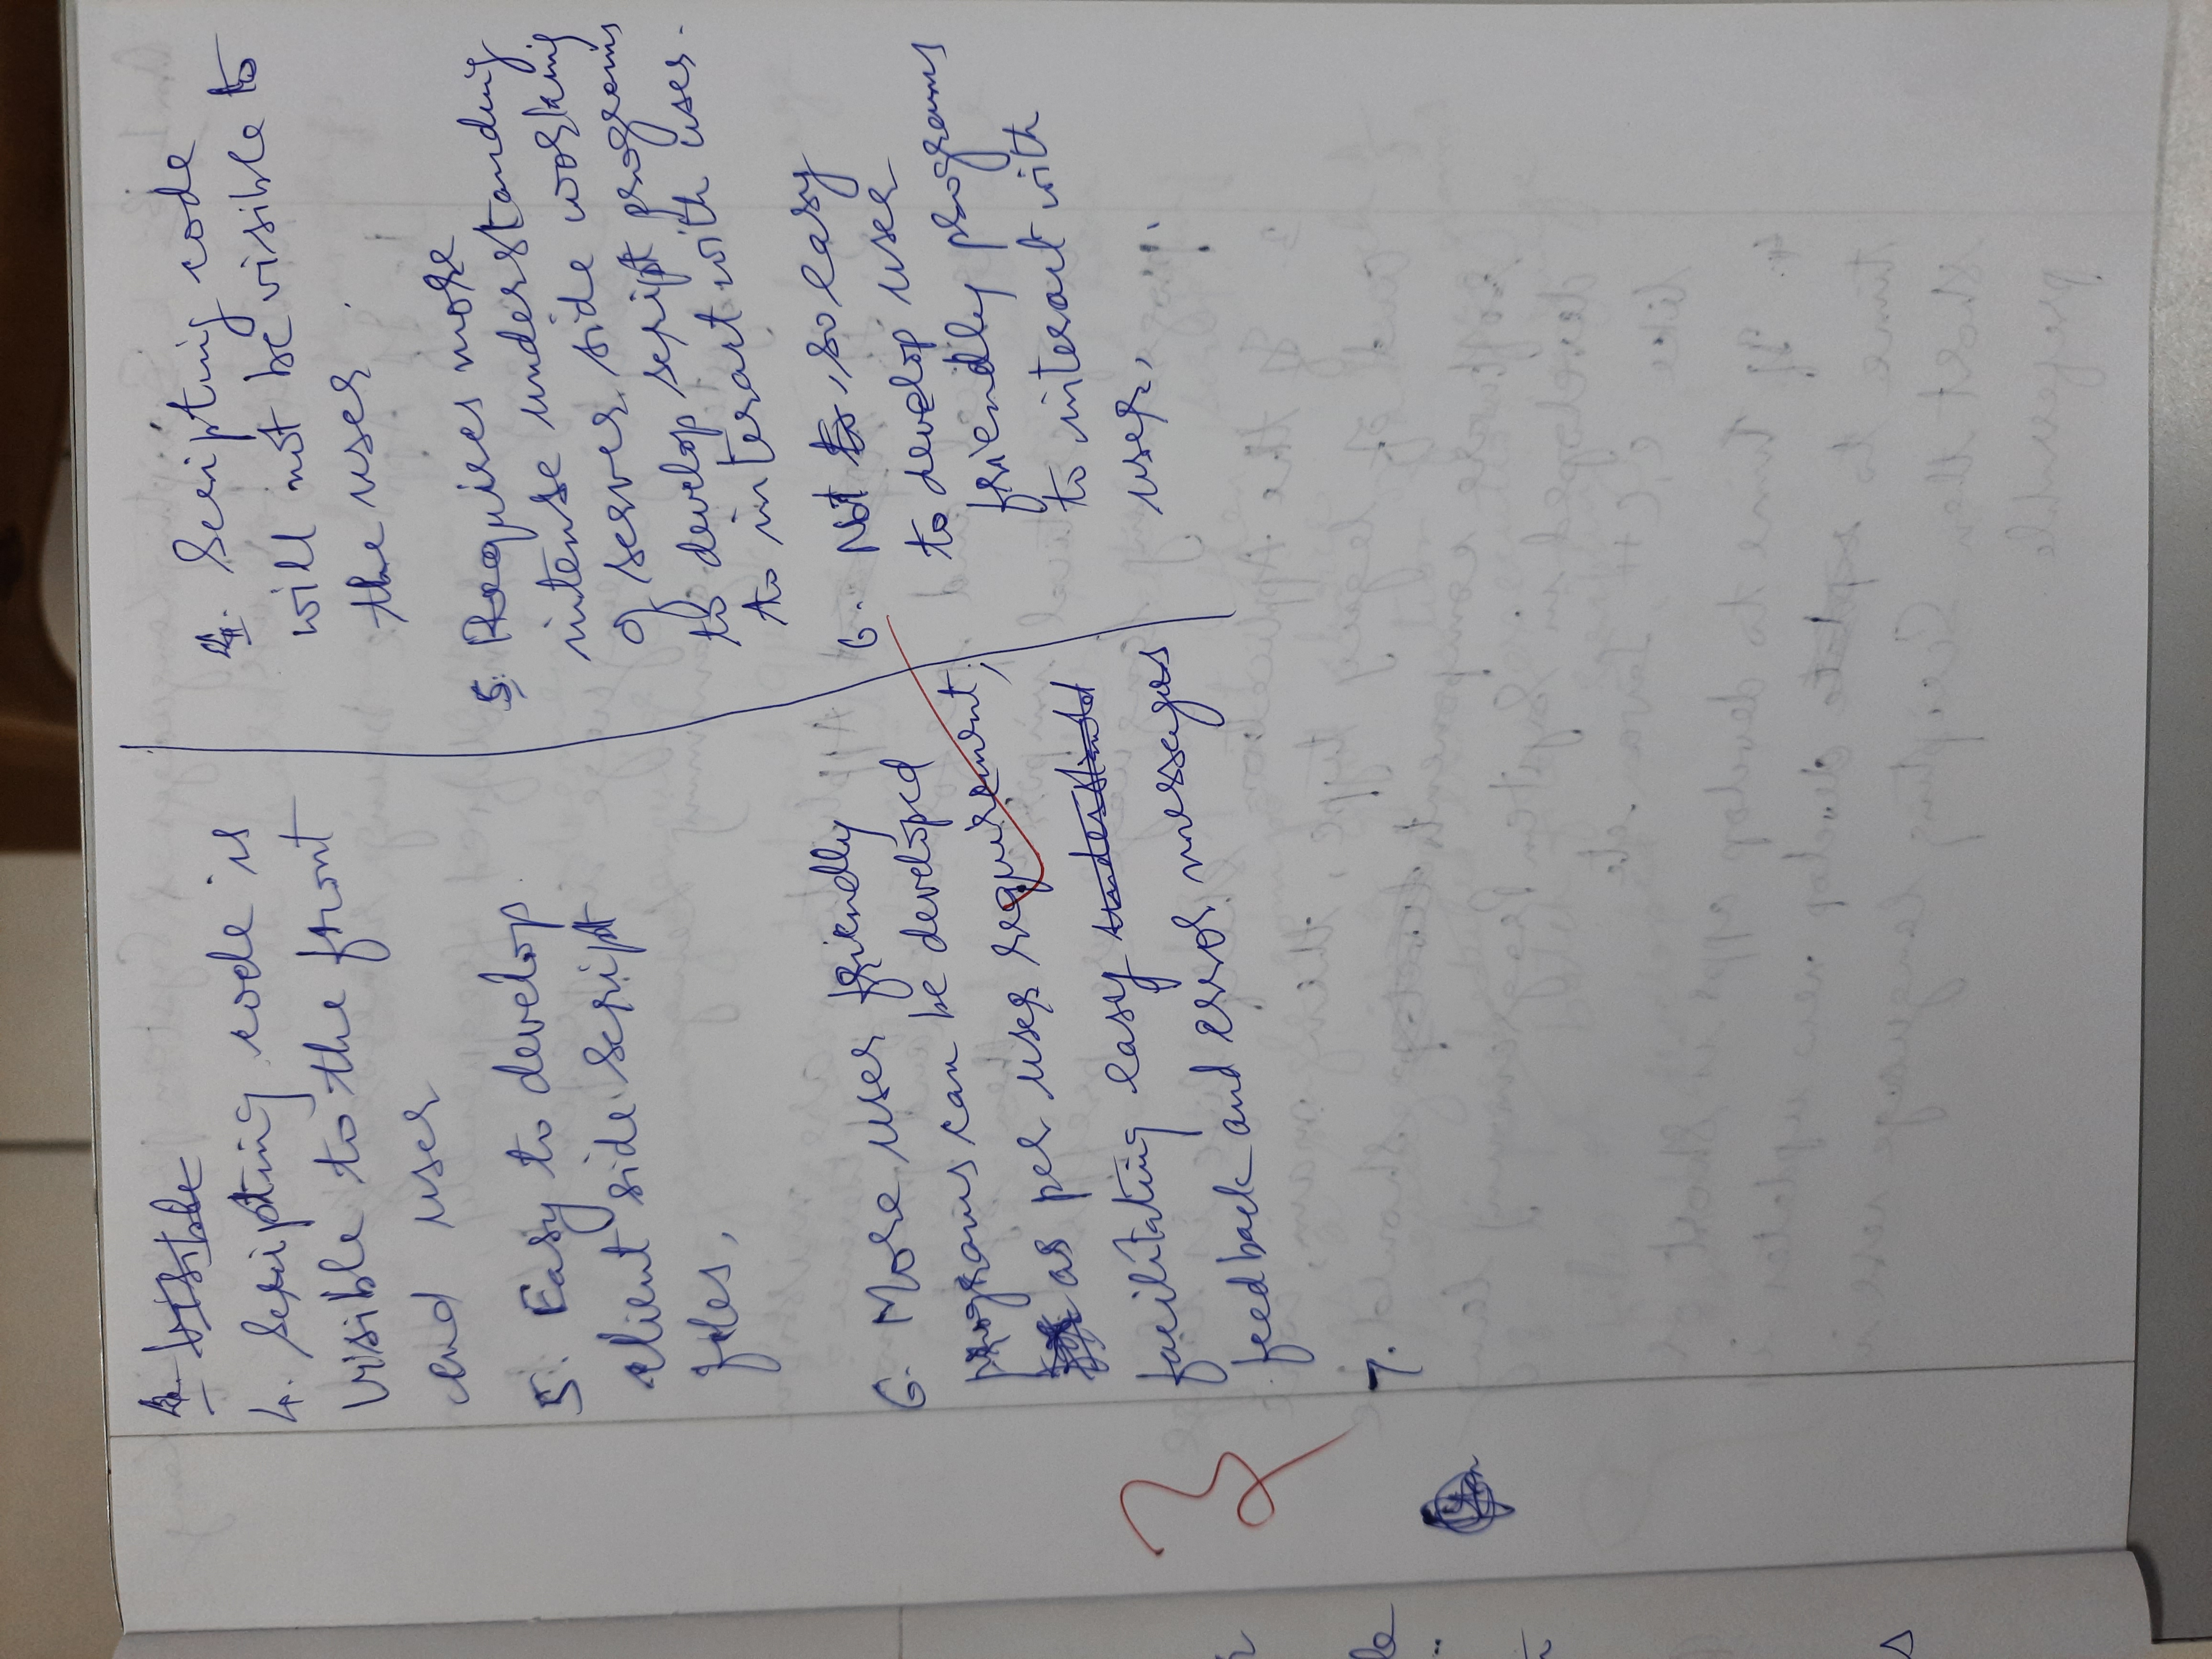 4. Scripting code is
visible to the front
end user
5. Easy to develop
client side script
files,
6. More user friendly
programs can be developed
as per user requirement,
facilitating easy
feedback and error messeges
7.
4. Scripting code
will not be visible to
the user.
5. Requires more
intense understanding
of server side working
to develop script programs
to interact with user.
6. Not so easy
to develop user
friendly programs
to interact with
user,